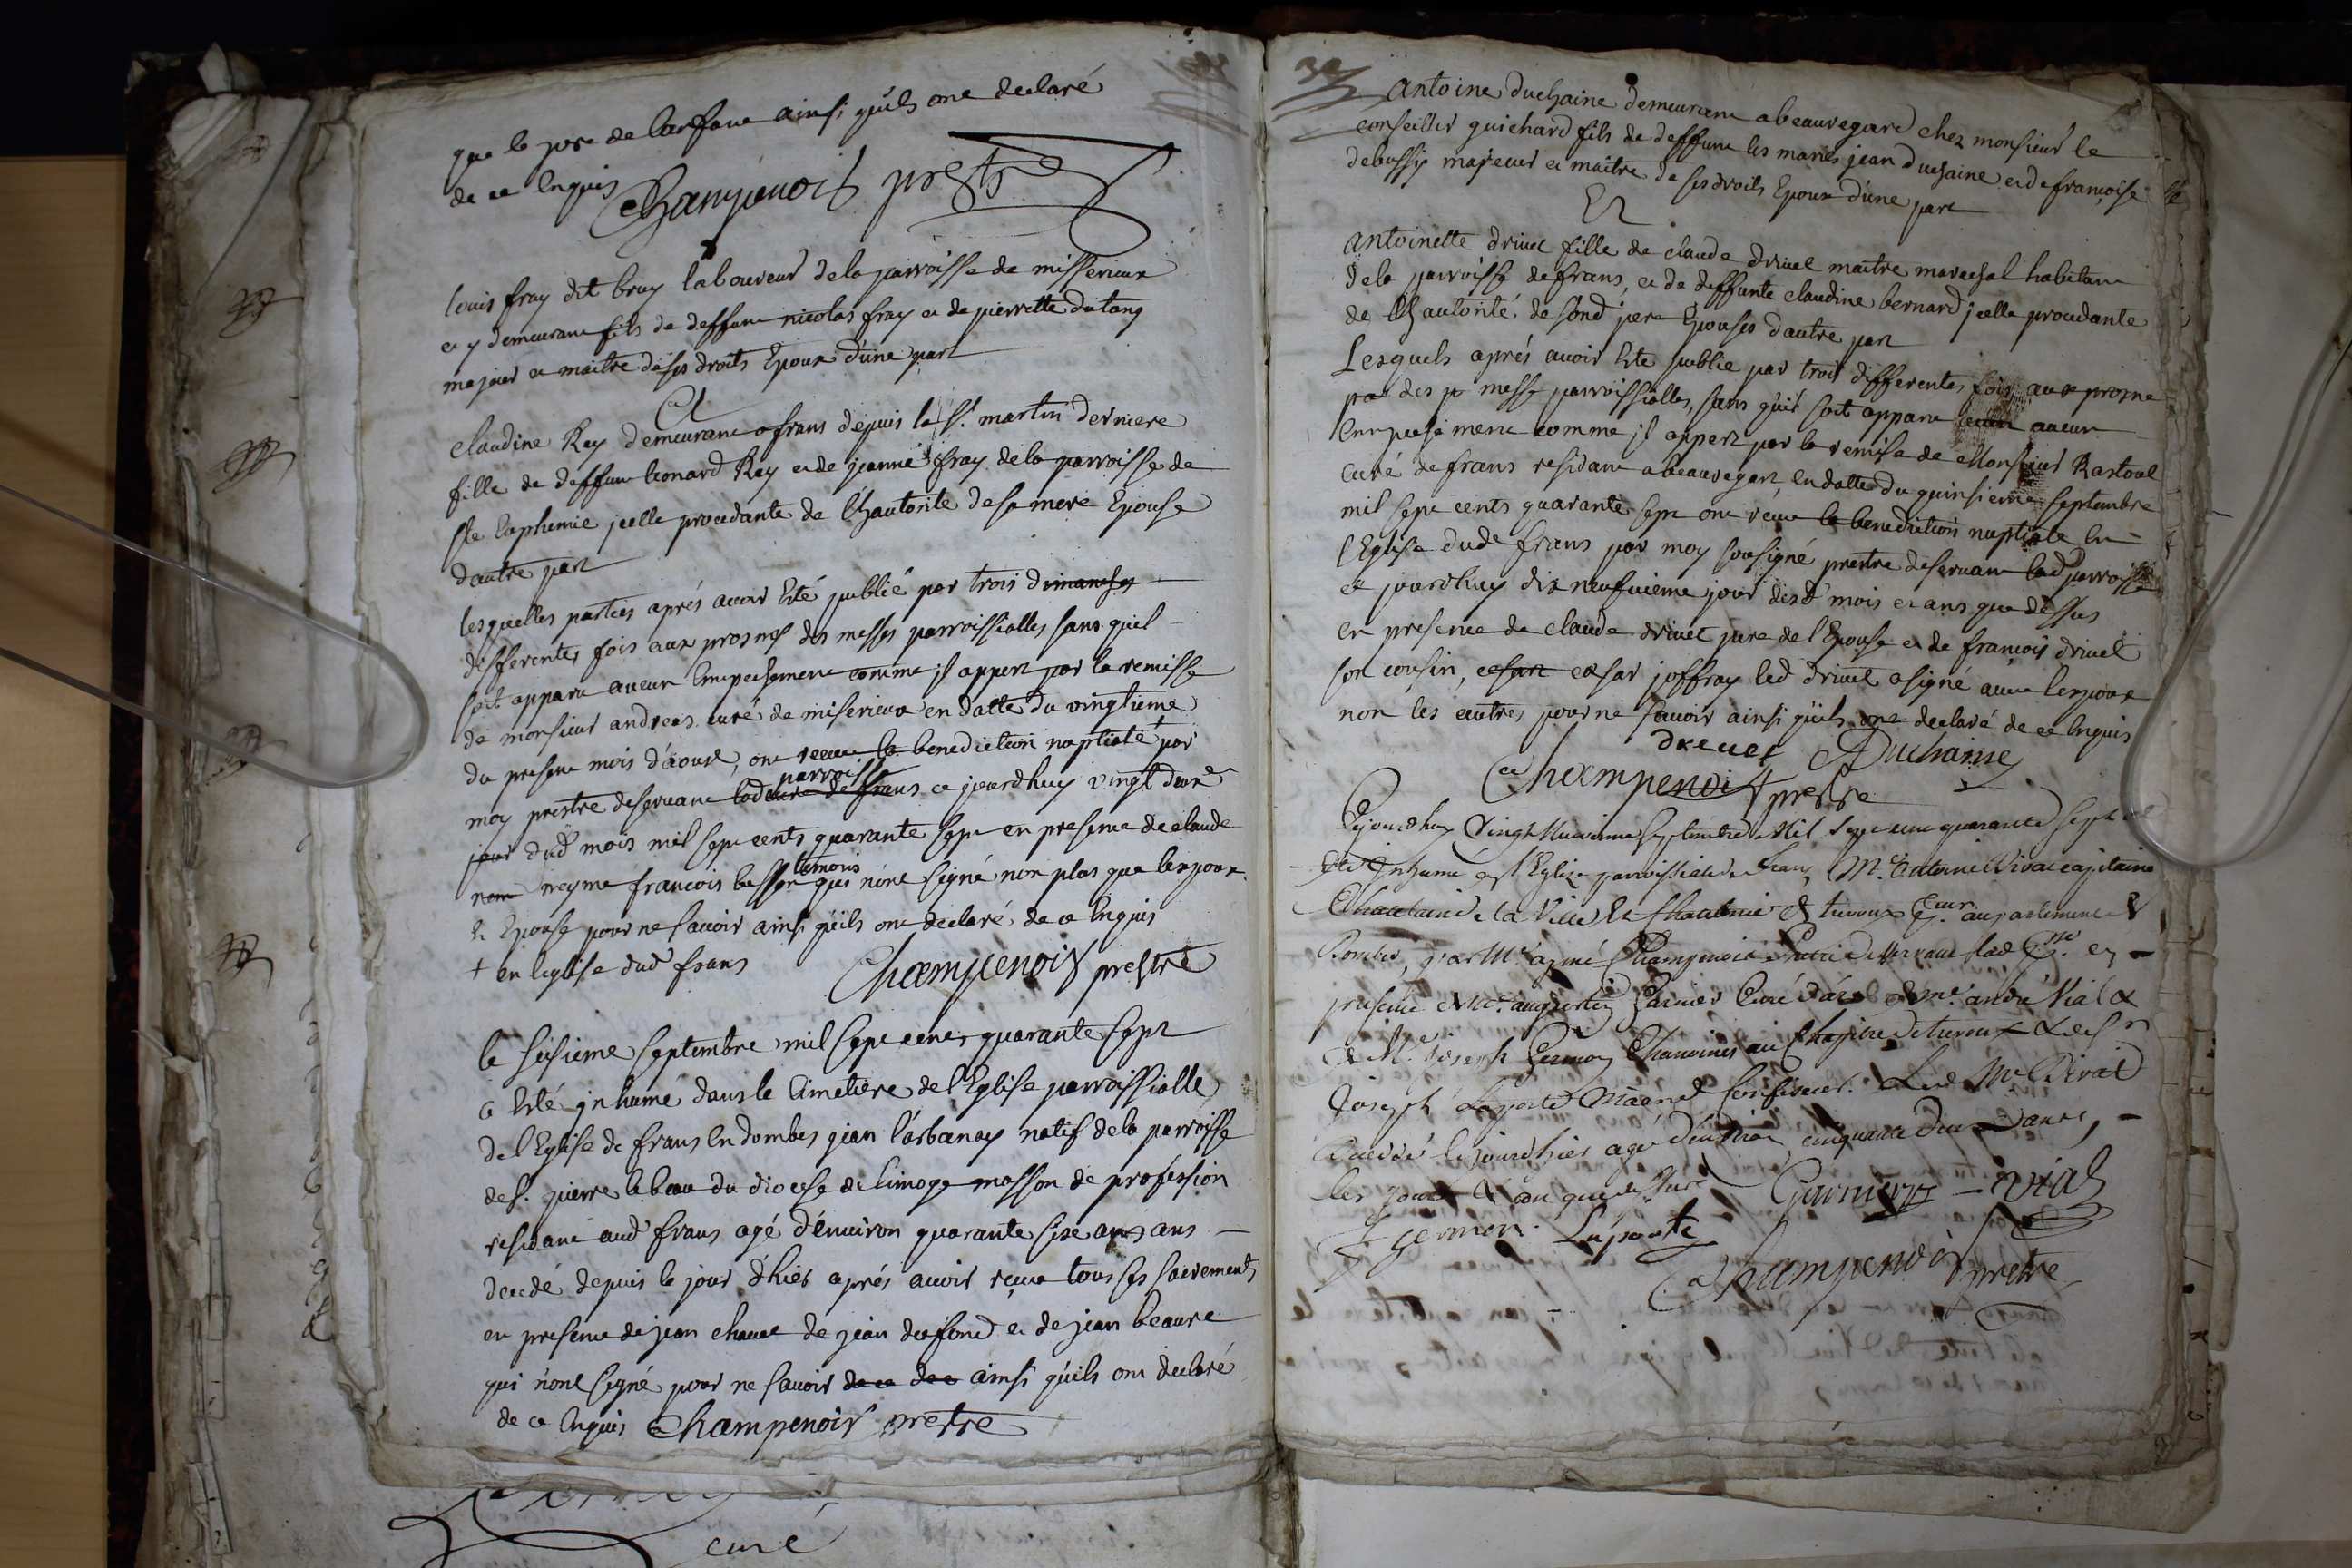 que le pere de lenfant ainsi quils ont declaré
de ce Enquis Champenois prestre
louis fray dit bruy laboureur dela parroisse de misserieux
et y demeurant fils de deffunt nicolas fray et de pierrette dutang
majeur et maitre deses droits Epoux dúne part
Et
claudine Rey demeurant a frans depuis la St. martin derniere
fille de deffunt leonard Rey et de jeanne fray de la parroisse de
Ste Euphemie jcelle procedante de lhautorité desa mere Epouse
dautre part
lesquelles parties aprés avoir Eté publié par trois dimanches
differentes fois aux prosnes des messes parroissialles sans quil
soit apparu aucun Empeschement comme jl appert par la remisse
de monsieur andreas curé de miserieux en datte du vingtieme
du present mois d'aoust, ont receu la benediction nuptiale par
parroisse
moy prestre deservant lad cure de frans ce jourdhuy vingt deux
jour dud mois mil sept cents quarante sept en presence de claude
temoins
nom neyme francois besson qui nónt signé non plus que lespoux
et Epouse pour ne savoir ainsi quils ont declaré de ce Enquis
+ en leglise dud frans Champenois prestre
le sisieme septembre mil sept cents quarante sept
a Eté jnhumé dans le Cimetiere de l'Eglise parroissialle
de l'Eglise de frans En dombes jean l'arbanay natif dela parroisse
de St. pierre du diocese de limoge masson de proféssion
residant aud frans agé dénviron quarante sixe ans ans
decedé depuis le jour d'hier aprés avoir reçeu tous ses sacrements
en presence de jean chanel de jean dufond et de jean beaure
qui nónt signé pour ne savoir de ce dec ainsi quils ont declaré
de ce Enquis Champenois prestre
curé
antoine duchaine demeurant a beauregard chez monsieur le
conseiller guichard fils de deffunt les mariés jean duchaine et de françoise
debussy majeur et maitre de ses droits Epoux d'une part
Et
antoinette drivet fille de claude drivet maitre marechal habitant
dela parroisse de frans, et de deffunte claudine bernard jcelle procedante
de lhautorité de sond pere Epouses dautre part
Lesquels aprés avoir Eté publie par trois differentes fois aux prosne
par des p messe parroissialles, sans quil soit apparu aucun
Empeschement comme jl appert par la remise de Monsieur Rastoul
curé de frans residant a beauregart, en datte du quinsieme septembre
mil sept cents quarante sept ont receu la benediction nuptiale En
l'Eglise dude frans par moy sousigné prestre deservant lad parroisse
ce jourdhuy dix neufvieme jour desd mois et ans que dessus
en presence de claude drivet pere de l'Epouse et de francois drivet
son cousin, cesar joffray led drivet a signé avec lespoux
non les autres pour ne savoir ainsi quils ont declaré de ce Enquis
drevet ADuchaine
Champenois prestre
Cejourdhuy Vingt septembre Mil sept cent quarante sept
Eté Inhumé en l'Eglize parroissiale de frans, Mr. Antoine capitaine
Chatelain de la Ville et de trevoux au parlement de
Dombes, par Champenois lad en
presence de Mre. Garnier Curé d'ars de Mre. andré Vial &
de Mre. Joseph Germon Chanoines au Chapitre de trevoux &
Joseph Laporte
Decedé le jourdhier agé d'environ cinquante deux ans,
les jour & an que dessus Garnier vial
Germon Laporte
Champenois prestre